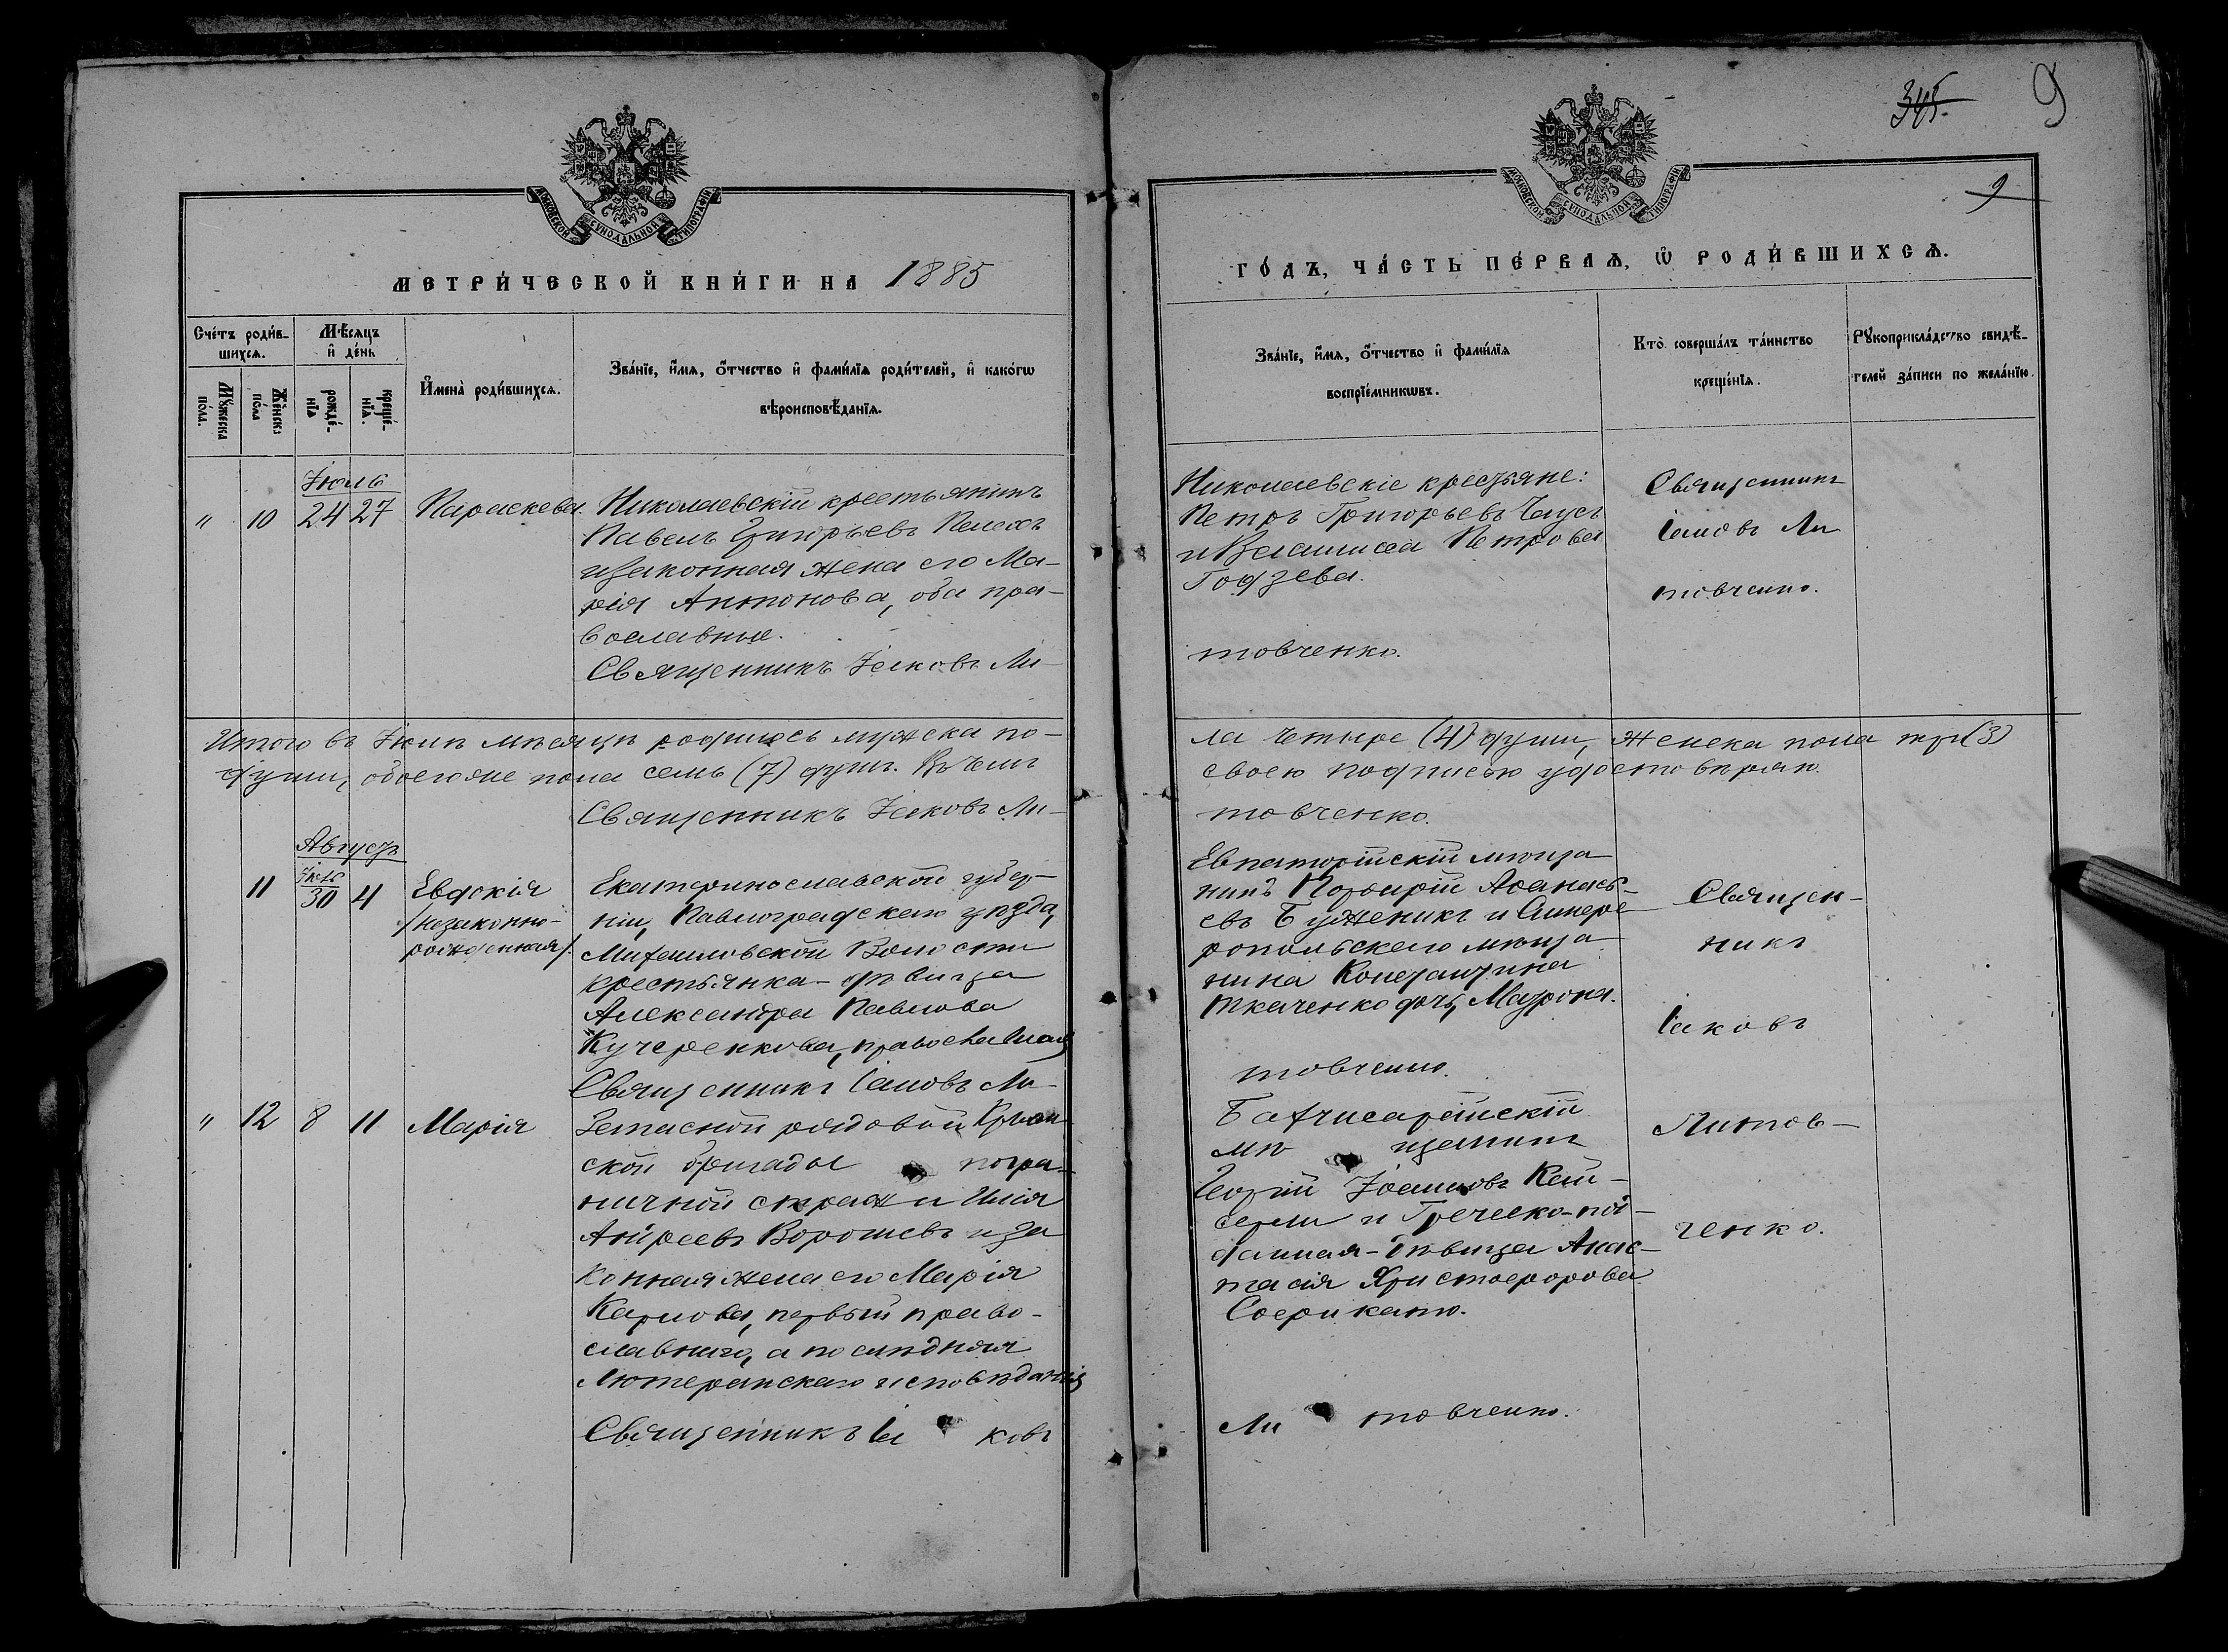 345.
9
9
МОСКОВСКОЙ СѴНОДАЛЬНОЙ ТИПОГРАФІИ
МОСКОВСКОЙ СѴНОДАЛЬНОЙ ТИПОГРАФІИ
МЕТРИ́ЧЕСКОЙ КНИ́ГИ НА 1885
ГО́ДЪ, ЧА́СТЬ ПЕ́РВАѦ, Ѡ РОДИ́ВШИХСѦ.
Сче́тъ роди́в-
шихсѧ.
Мѣсѧцъ
и де́нь
Мꙋ́жеска
по́ла.
Же́нска
по́ла
рожде́-
нїѧ
креще́-
нїѧ.
Имена̀ роди́вшихсѧ.
Зва́нїе, и́мѧ, о́тчество и фами́лїѧ роди́телей, и како́гѡ
вѣроисповѣ́данїѧ.
Зва́нїе, и́мѧ, о́тчество и фами́лїѧ
воспрїе́мникѡвъ.
Кто̀ соверша́лъ та́инство
креще́нїѧ.
Рꙋкоприкла́дство свидѣ́-
телей за́писи по жела́нїю.
Іюль
" 10 24 27 Параскева.
Николаевскій крестьянинъ
Павелъ Григорьевъ Пелехъ
и законная жена его Ма-
рія Антонова, оба пра-
вославные.
Священникъ Іаковъ Ли-
Николаевскіе крестьяне:
Петръ Григорьевъ
и Петрова
товченко.
Священникъ
Іаковъ Ли
товченко.
Итого въ Іюлѣ мѣсяцѣ родилось мужеска по-
ла четыре (4) души, женска пола три (3)
души, обоего же пола семь (7) душъ. Въ чемъ
своею подписью удостовѣряю.
Священникъ Іаковъ Ли-
товченко.
Августъ
11 Іюль 30 4 Евдокія
/незаконно-
рожденная/.
Екатеринославской губер-
ніи, Павлоградскаго уѣзда,
Михайловской Волости
крестьянка-дѣвица
Александра Павлова
Кучеренкова, православная
Священникъ Іаковъ Ли-
Евпаторійскій мѣща-
нинъ Порфирій Аѳанась-
евъ Буженикъ и Симфе-
ропольскаго мѣща-
нина Константина
Ткаченко дочь, Матрона.
товченко.
Священ-
никъ
Іаковъ
Литов-
ченко.
" 12 8 11 Марія
Запасной рядовой Крым-
ской бригады погра-
ничной стражи Илія
Андреевъ Ворошевъ и за
конная жена его Марія
Карлова, первый право-
славнаго, а послѣдняя
Лютеранскаго исповѣданія
Священникъ Іа ковъ
Бахчисарайскій
мѣ щанинъ
Георгій Іоанновъ Кай-
серли и Греческо-под-
данная-дѣвица Анас-
тасія Христофорова
Ли товченко.